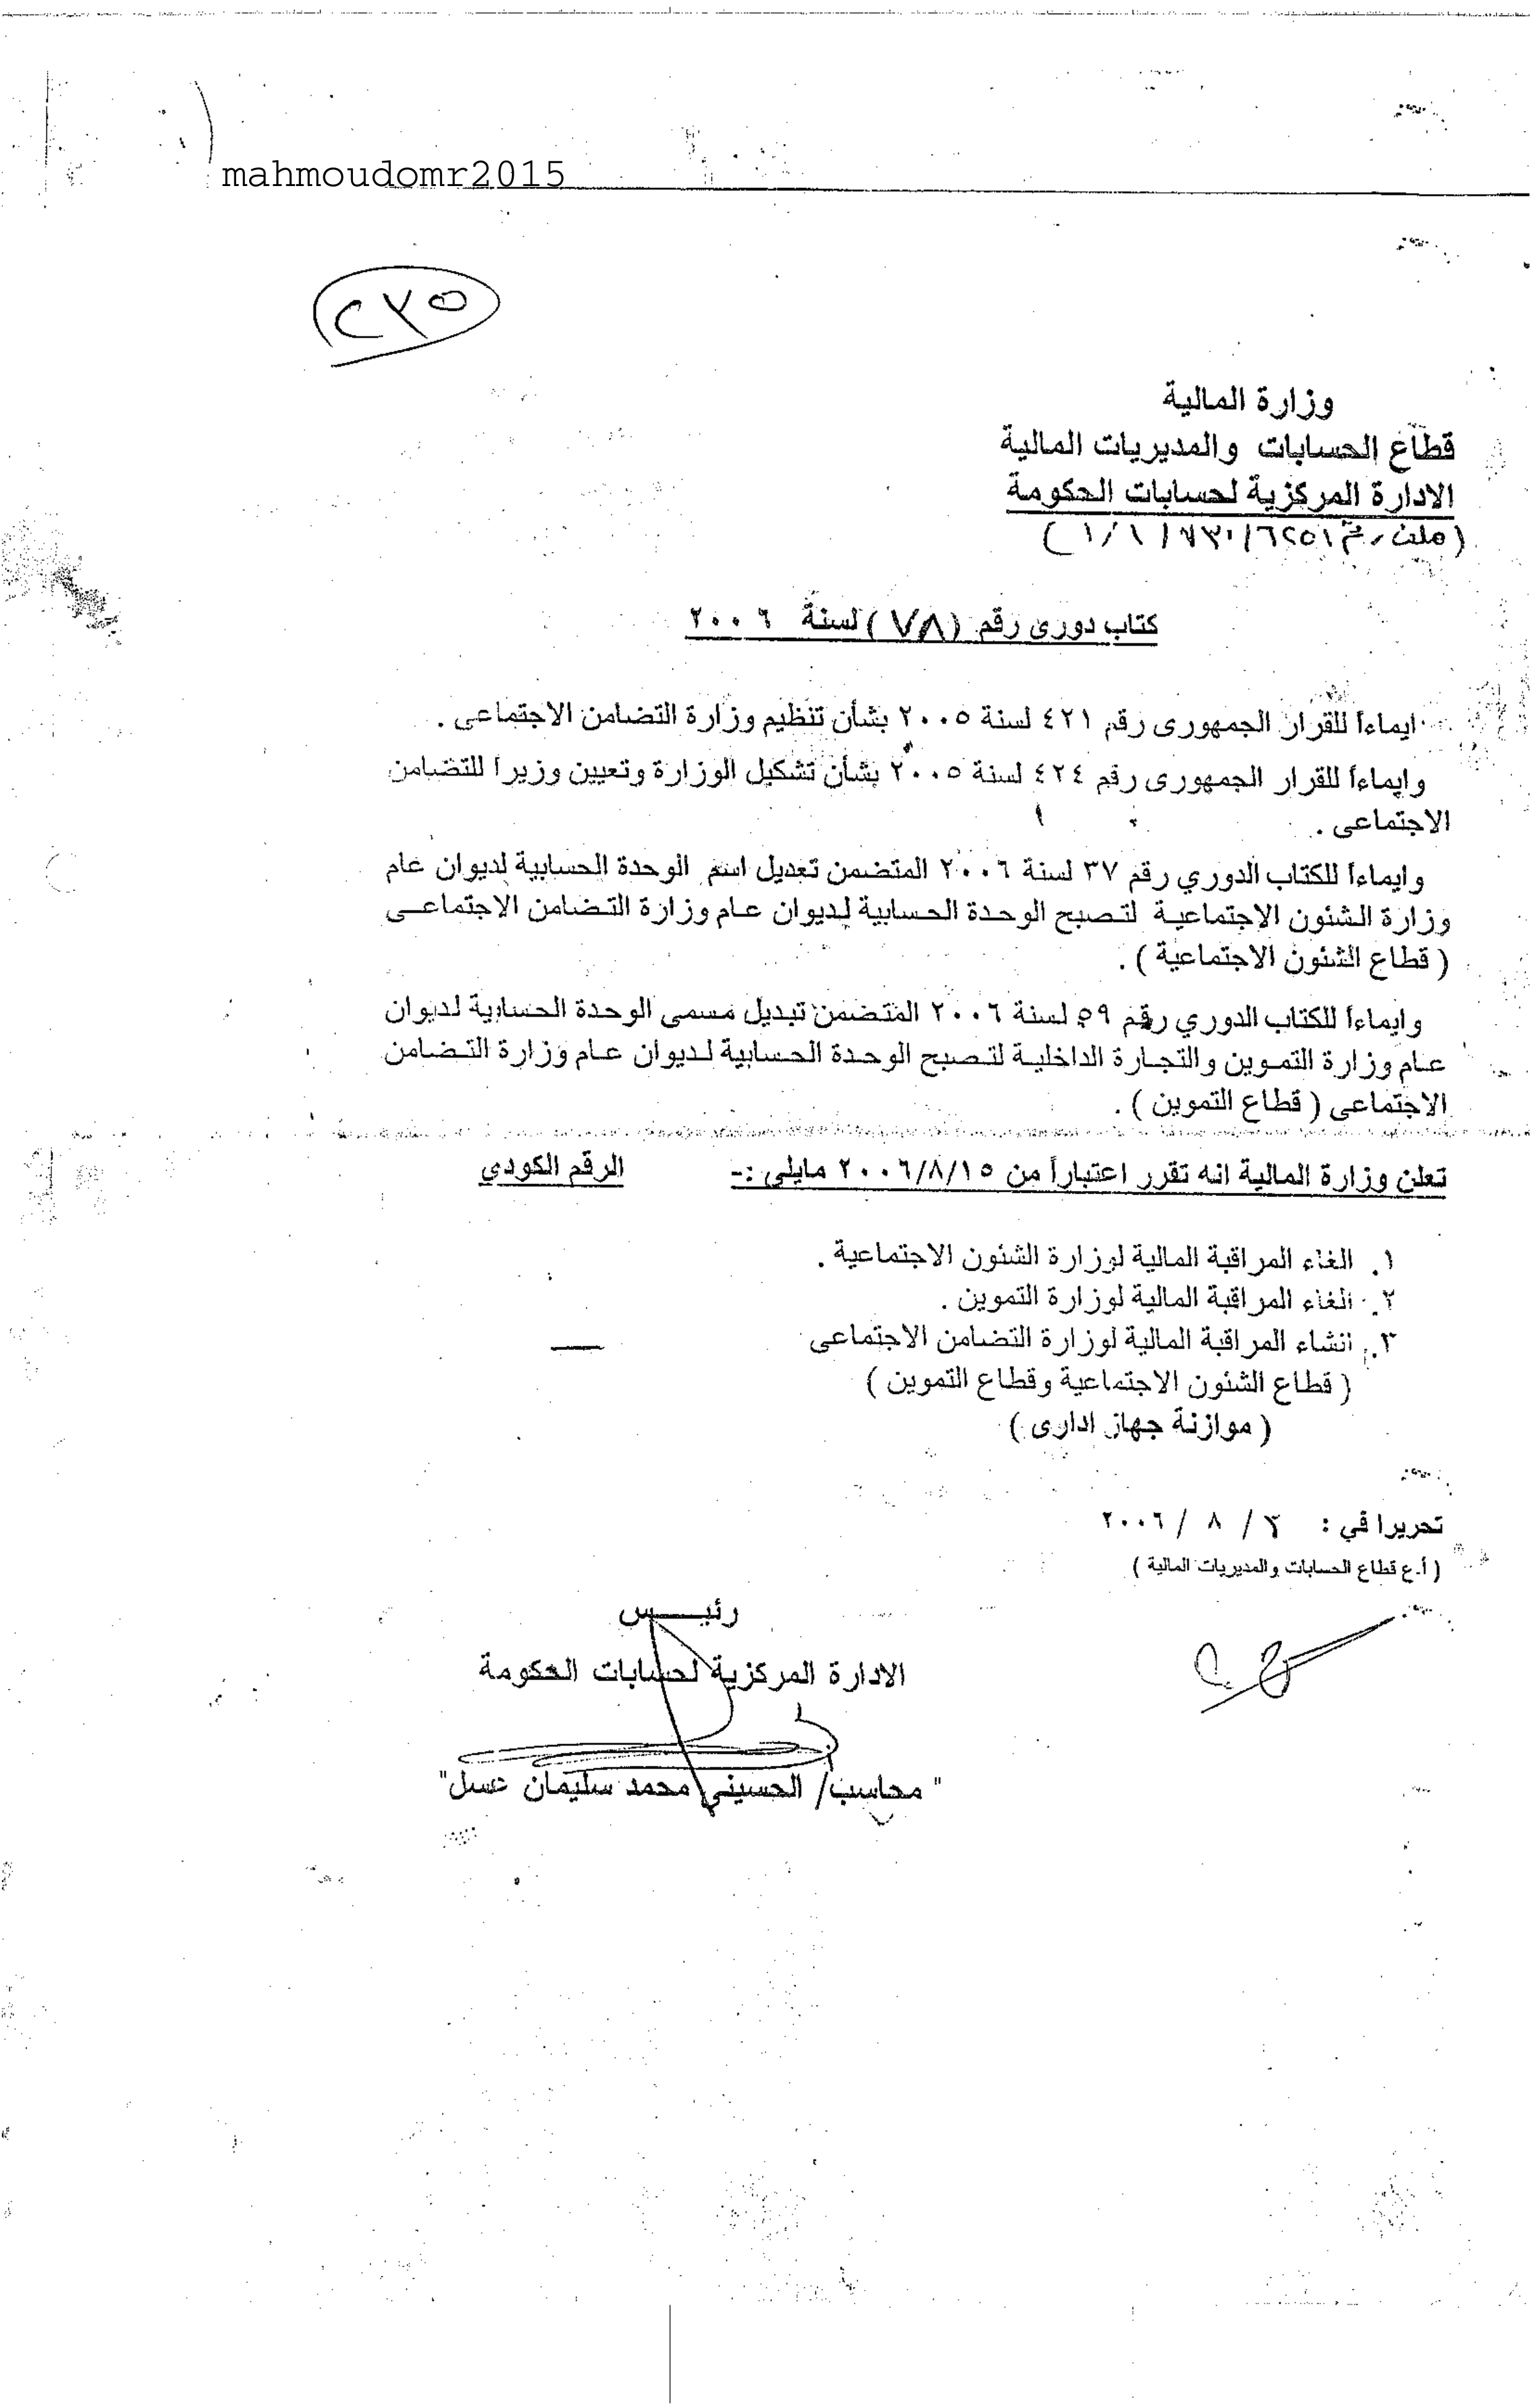 mahmoudomr2015
٢٣٥
وزارة المالية
قطاع الحسابات والمديريات المالية
الادارة المركزية لحسابات الحكومة
(ملف رقم
كتاب دورى رقم (٧٨) لسنة ٢٠٠٦
ايماءاً للقرار الجمهورى رقم ٤٢١ لسنة ٢٠٠٥ بشأن تنظيم وزارة التضامن الاجتماعى .
وايماءاً للقرار الجمهورى رقم ٤٢٤ لسنة ٢٠٠٥ بشأن تشكيل الوزارة وتعيين وزيراً للتضامن
الاجتماعى .
وايماءاً للكتاب الدوري رقم ٣٧ لسنة ٢٠٠٦ المتضمن تعديل اسم الوحدة الحسابية لديوان عام
وزارة الشئون الاجتماعية لتصبح الوحدة الحسابية لديوان عام وزارة التضامن الاجتماعى
( قطاع الشئون الاجتماعية ) .
وايماءاً للكتاب الدوري رقم ٥٩ لسنة ٢٠٠٦ المتضمن تبديل مسمى الوحدة الحسابية لديوان
عام وزارة التموين والتجارة الداخلية لتصبح الوحدة الحسابية لديوان عام وزارة التضامن
الاجتماعى ( قطاع التموين ) .
تعلن وزارة المالية انه تقرر اعتباراً من ٢٠٠٦/٨/١٥ مايلى :- الرقم الكودى
١. الغاء المراقبة المالية لوزارة الشئون الاجتماعية .
٢. الغاء المراقبة المالية لوزارة التموين .
٣. انشاء المراقبة المالية لوزارة التضامن الاجتماعى —
( قطاع الشئون الاجتماعية وقطاع التموين )
( موازنة جهاز ادارى )
تحريرا في : ٢ / ٨ / ٢٠٠٦
( أ.ع قطاع الحسابات والمديريات المالية )
رئيس
الادارة المركزية لحسابات الحكومة
" محاسب/ الحسيني محمد سليمان عسل"